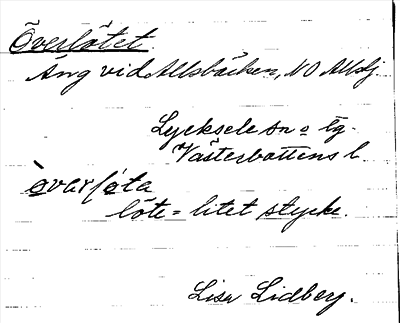 Överlötet.
Äng vid Allsbäcken, NO Allsj.
Lycksele sn o tg.
Västerbottens l.
òvarløta
löte = litet stycke.
Lisa Lidberg.